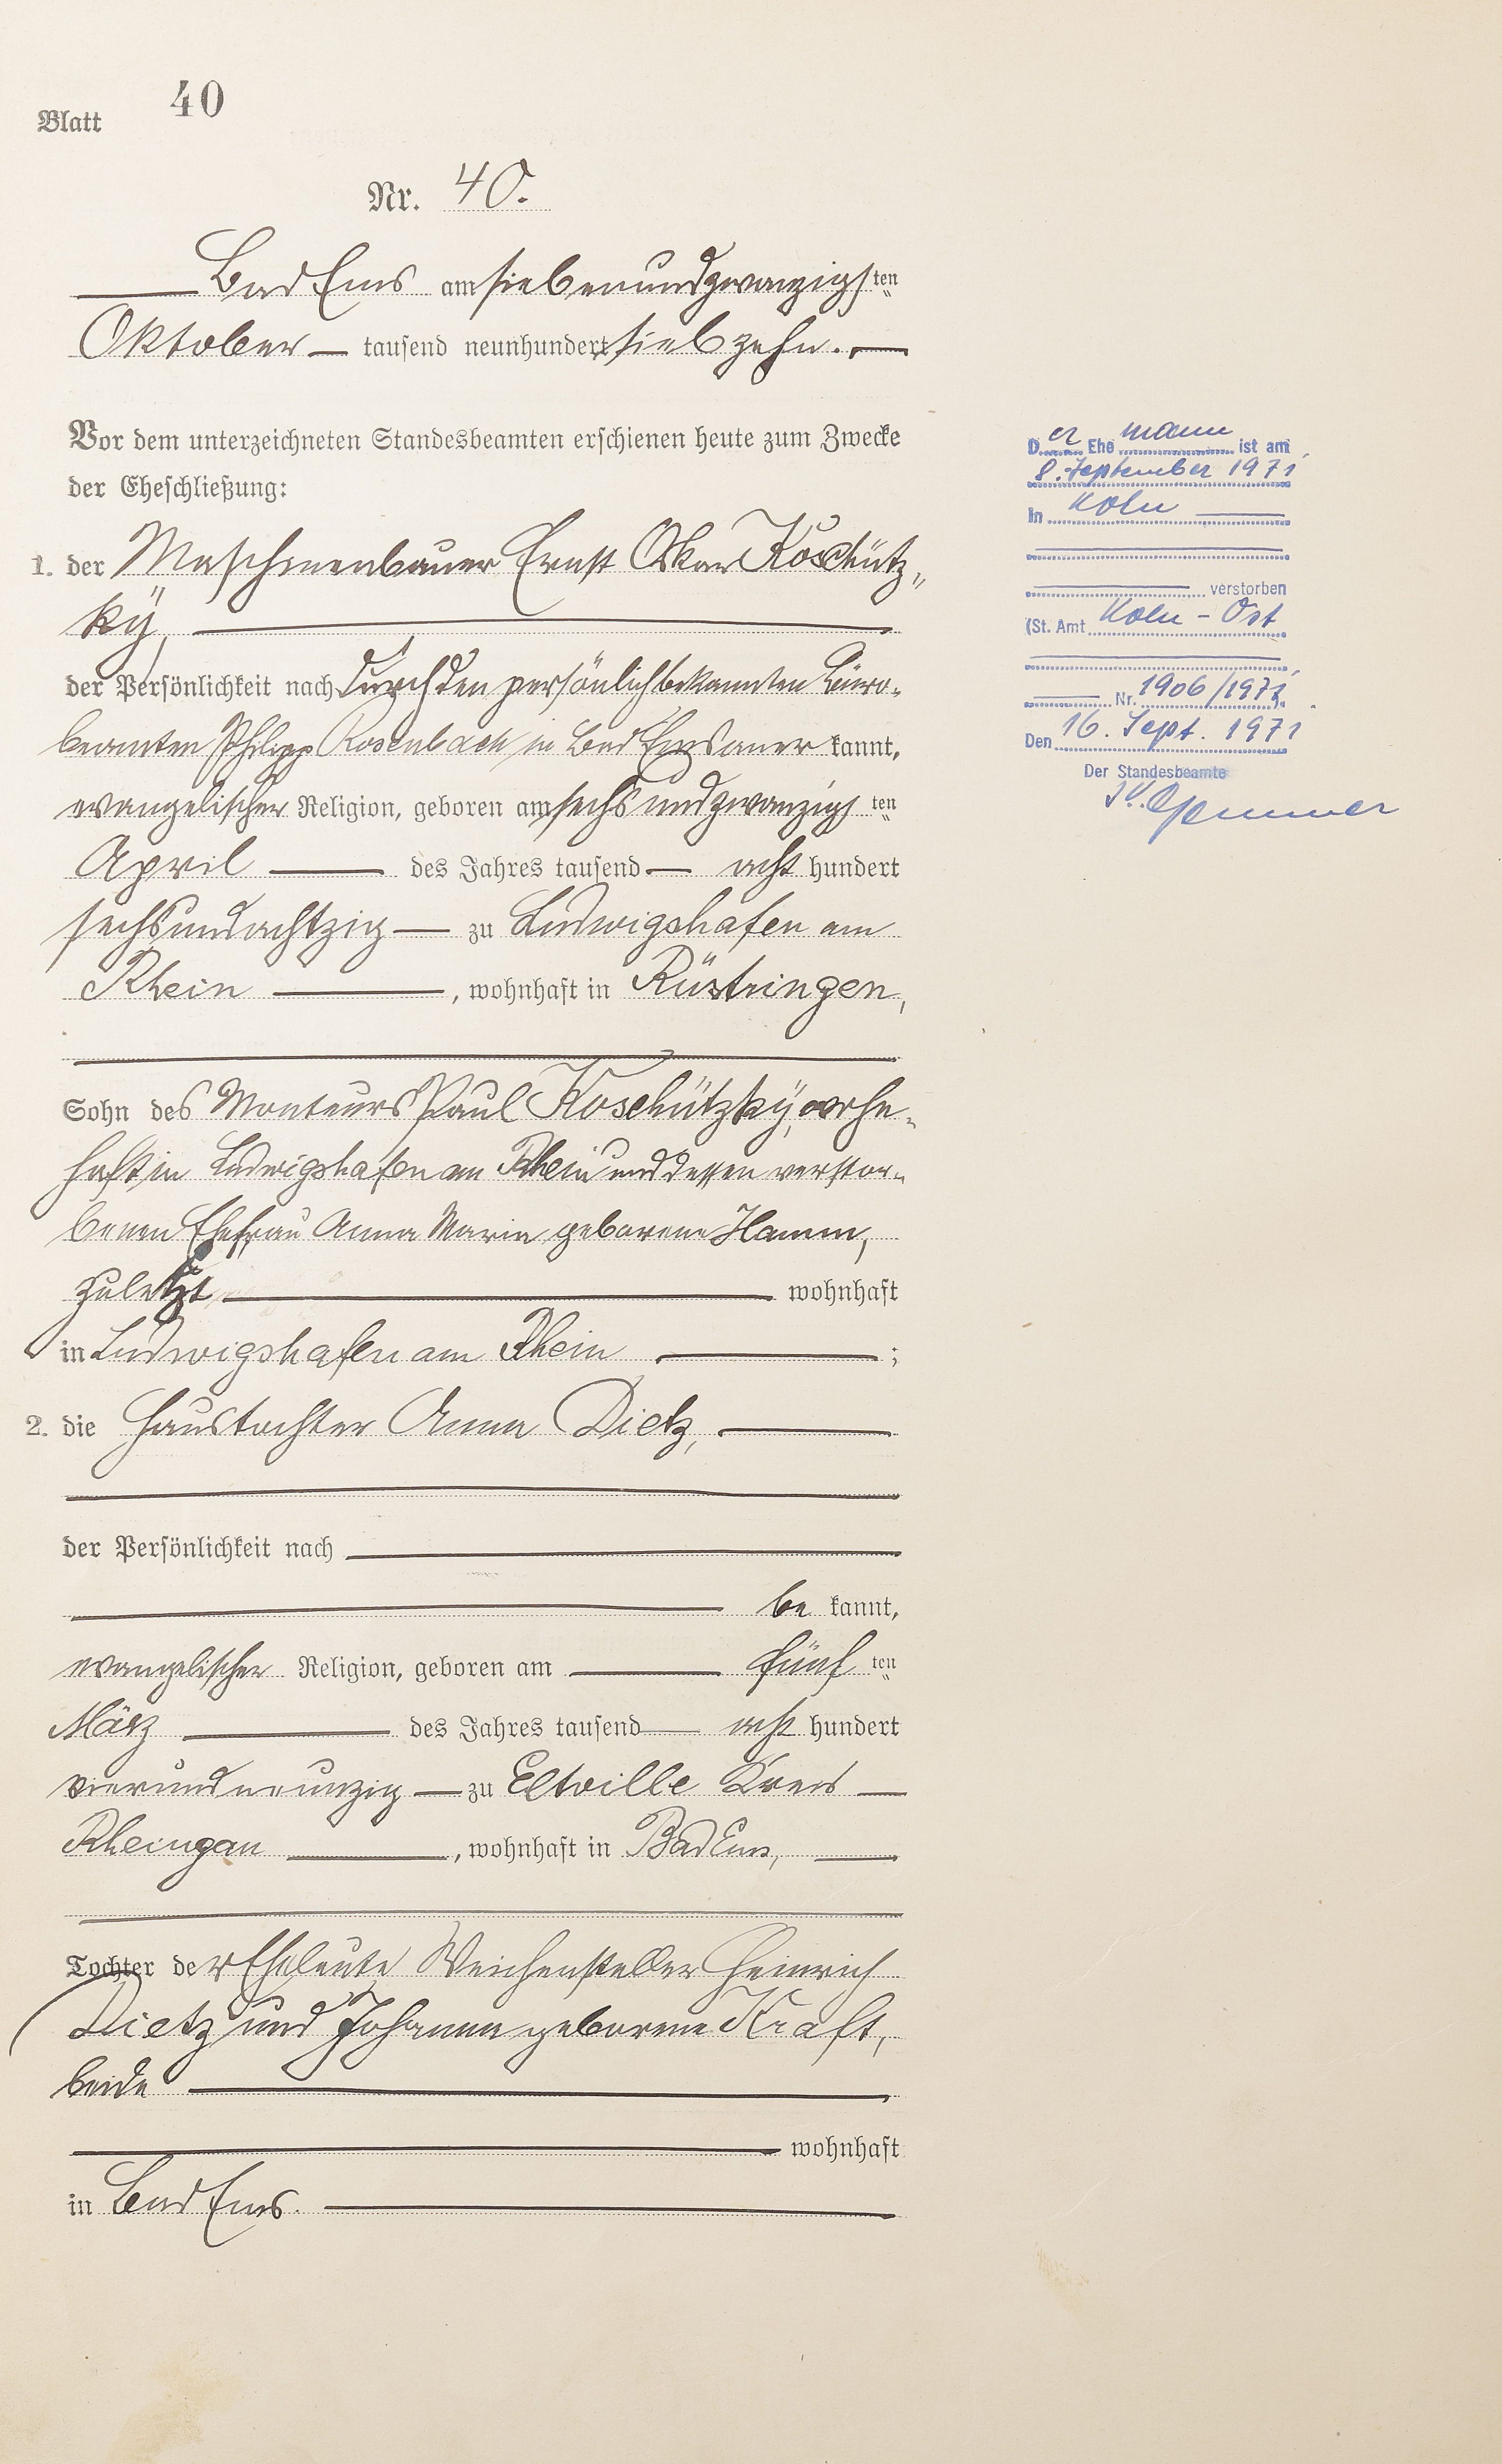 Blatt 40
Nr. 40.
Bad Ems am siebenundzwanzigsten
Oktober tausend neunhundert siebzehn.
Vor dem unterzeichneten Standesbeamten erschienen heute zum Zwecke
der Eheschließung:
1. der Maschinenbauer Ernst Oskar Koschütz-
ky,
der Persönlichkeit nach durch den persönlich bekannten Büro-
beamten Philipp Rosenbach in Bad Ems anerkannt,
evangelischer Religion, geboren am sechsundzwanzigsten
April des Jahres tausend acht hundert
sechsundachtzig zu Ludwigshafen am
Rhein, wohnhaft in Rüstringen,
Sohn des Monteurs Paul Koschützky, wohn-
haft in Ludwigshafen am Rhein und dessen verstor-
benen Ehefrau Anna Maria geborene Hamm,
zuletzt wohnhaft
in Ludwigshafen am Rhein;
2. die Haustochter Anna Dietz,
der Persönlichkeit nach
bekannt,
evangelischer Religion, geboren am fünften
März des Jahres tausend acht hundert
vierundneunzig zu Eltville Kreis
Rheingau, wohnhaft in Bad Ems,
Tochter der Eheleute Weichensteller Heinrich
Dietz und Johanna geborene Kraft,
beide
wohnhaft
in Bad Ems.
Der Ehemann ist am
8. September 1971
in Köln
verstorben
(St. Amt Köln-Ost
Nr. 1906/1971.
Den 16. Sept. 1971
Der Standesbeamte